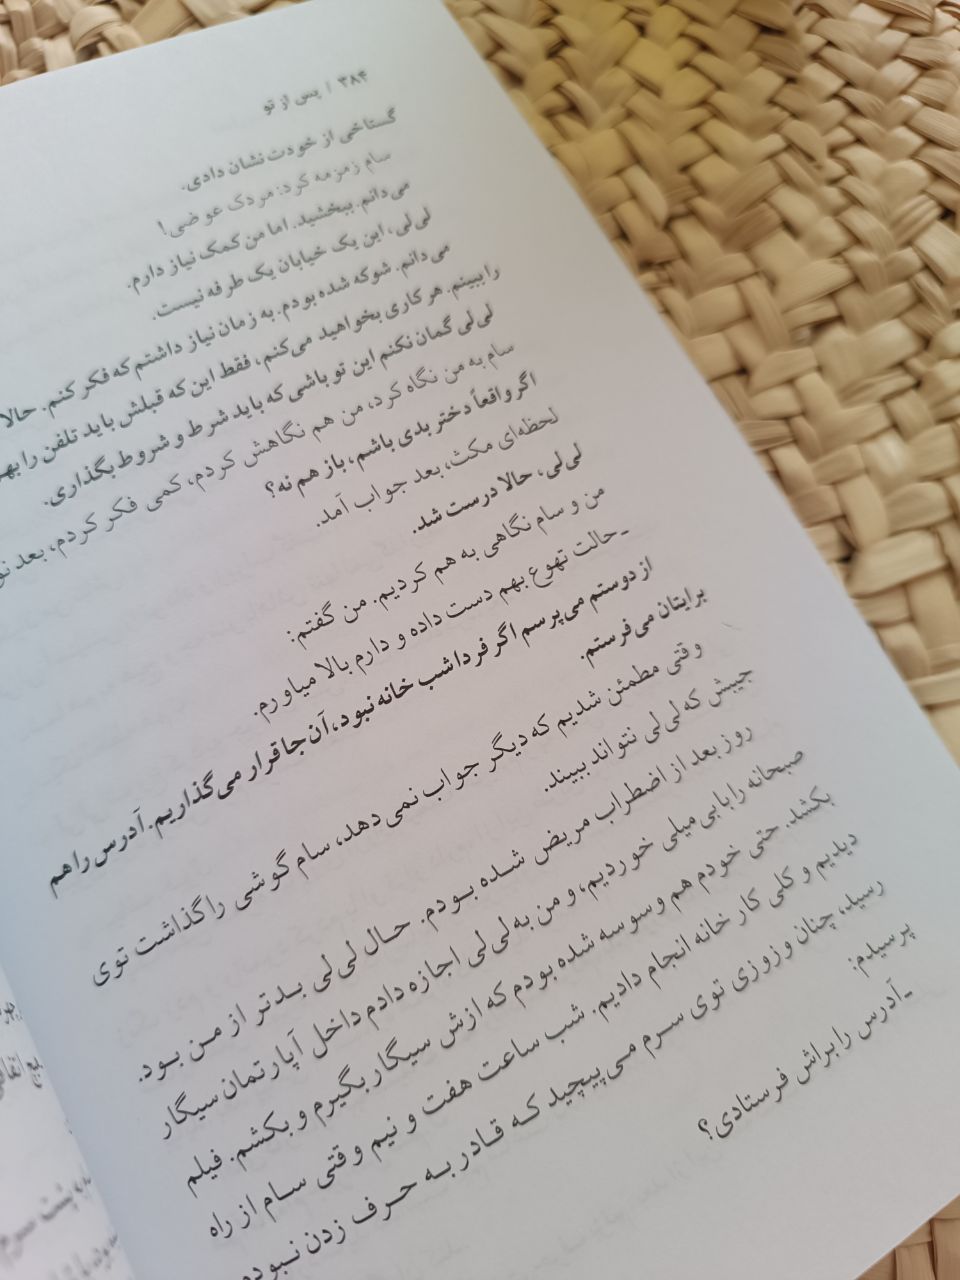 ۳۸۴ / پس از تو
گستاخی از خودت نشان دادی.
سام زمزمه کرد: مردک عوضی!
می‌دانم. ببخشید. اما من کمک نیاز دارم.
لی‌لی، این یک خیابان یک طرفه نیست.
می‌دانم. شوکه شده بودم. به زمان نیاز داشتم که فکر کنم. حالا
را ببینم. هر کاری بخواهید می‌کنم، فقط این که قبلش باید تلفن را
لی‌لی گمان نکنم این تو باشی که باید شرط و شروط بگذاری.
سام به من نگاه کرد، من هم نگاهش کردم، کمی فکر کردم، بعد
اگر واقعاً دختر بدی باشم، باز هم نه؟
لحظه‌ای مکث، بعد جواب آمد.
لی‌لی، حالا درست شد.
من و سام نگاهی به هم کردیم. من گفتم:
ـ حالت تهوع بهم دست داده و دارم بالا میاورم.
از دوستم می‌پرسم اگر فردا شب خانه نبود، آن جا قرار می‌گذاریم. آدرس را هم
برایتان می‌فرستم.
وقتی مطمئن شدیم که دیگر جواب نمی‌دهد، سام گوشی را گذاشت توی
جیبش که لی‌لی نتواند ببیند.
روز بعد از اضطراب مریض شده بودم. حال لی‌لی بدتر از من بود.
صبحانه را با بی‌میلی خوردیم، و من به لی‌لی اجازه دادم داخل آپارتمان سیگار
بکشد. حتی خودم هم وسوسه شده بودم که ازش سیگار بگیرم و بکشم. فیلم
دیدیم و کلی کار خانه انجام دادیم. شب ساعت هفت و نیم وقتی سام از راه
رسید، چنان وزوزی توی سرم می‌پیچید که قادر به حرف زدن نبودم
پرسیدم:
ـ آدرس را براش فرستادی؟